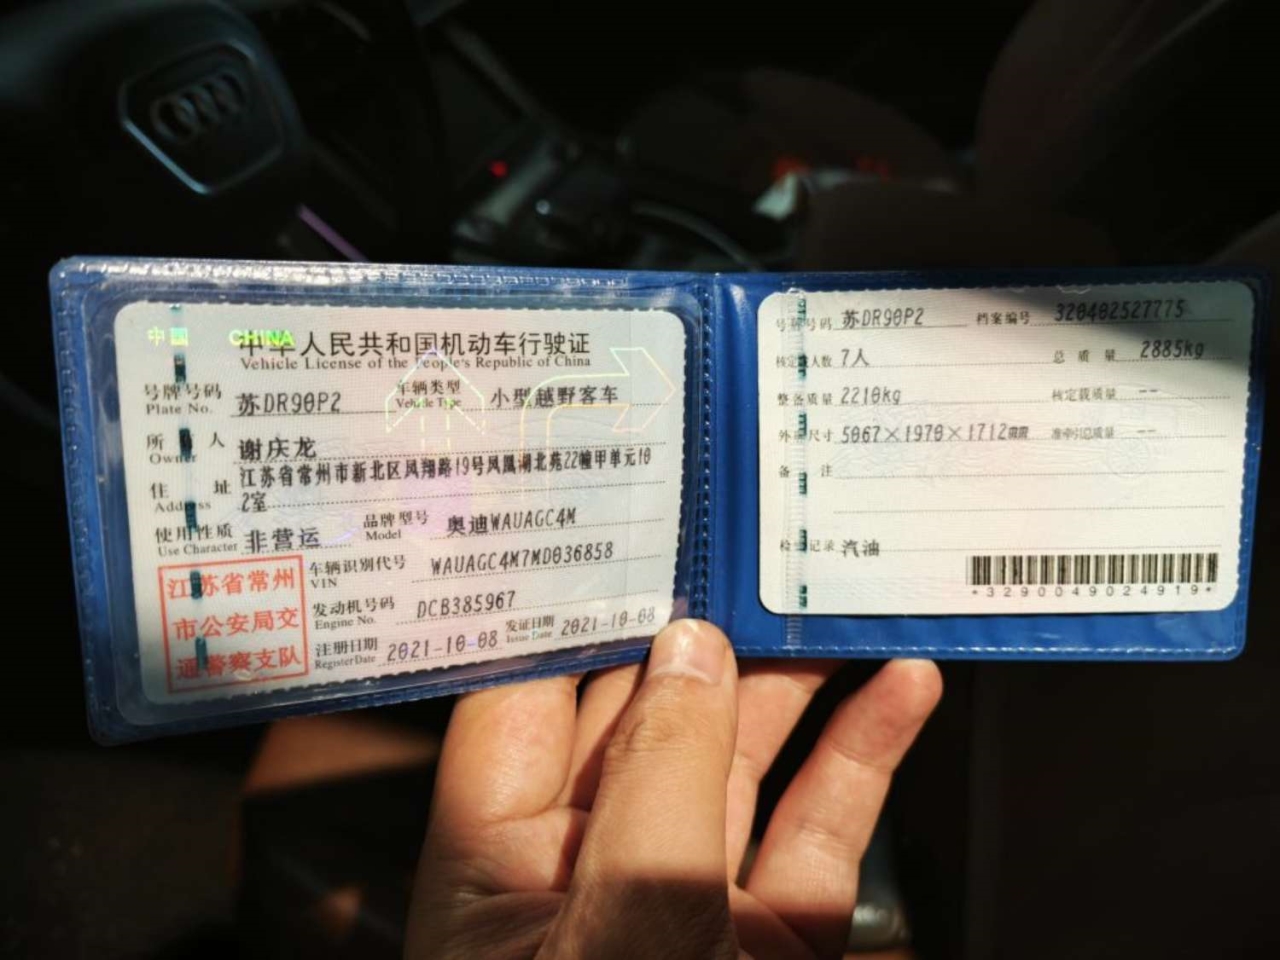 中国 CHINA
中华人民共和国机动车行驶证
Vehicle License of the People's Republic of China
号牌号码 苏DR90P2 车辆类型 小型越野客车
Plate No. Vehicle Type
所有人 谢庆龙
Owner
住址 江苏省常州市新北区凤翔路19号凤凰湖北苑22幢甲单元10
Address 2室
使用性质 非营运 品牌型号 奥迪WAUAGC4M
Use Character Model
江苏省常州
市公安局交
通警察支队
车辆识别代号 WAUAGC4M7MD036858
VIN
发动机号码 DCB385967
Engine No.
注册日期 2021-10-08 发证日期 2021-10-08
Register Date Issue Date
号牌号码 苏DR90P2 档案编号 320402527775
核定载人数 7人 总质量 2885kg
整备质量 2210kg 核定载质量 --
外廓尺寸 5067×1970×1712mm 准牵引总质量 --
备注
检验记录 汽油
*3290049024919*